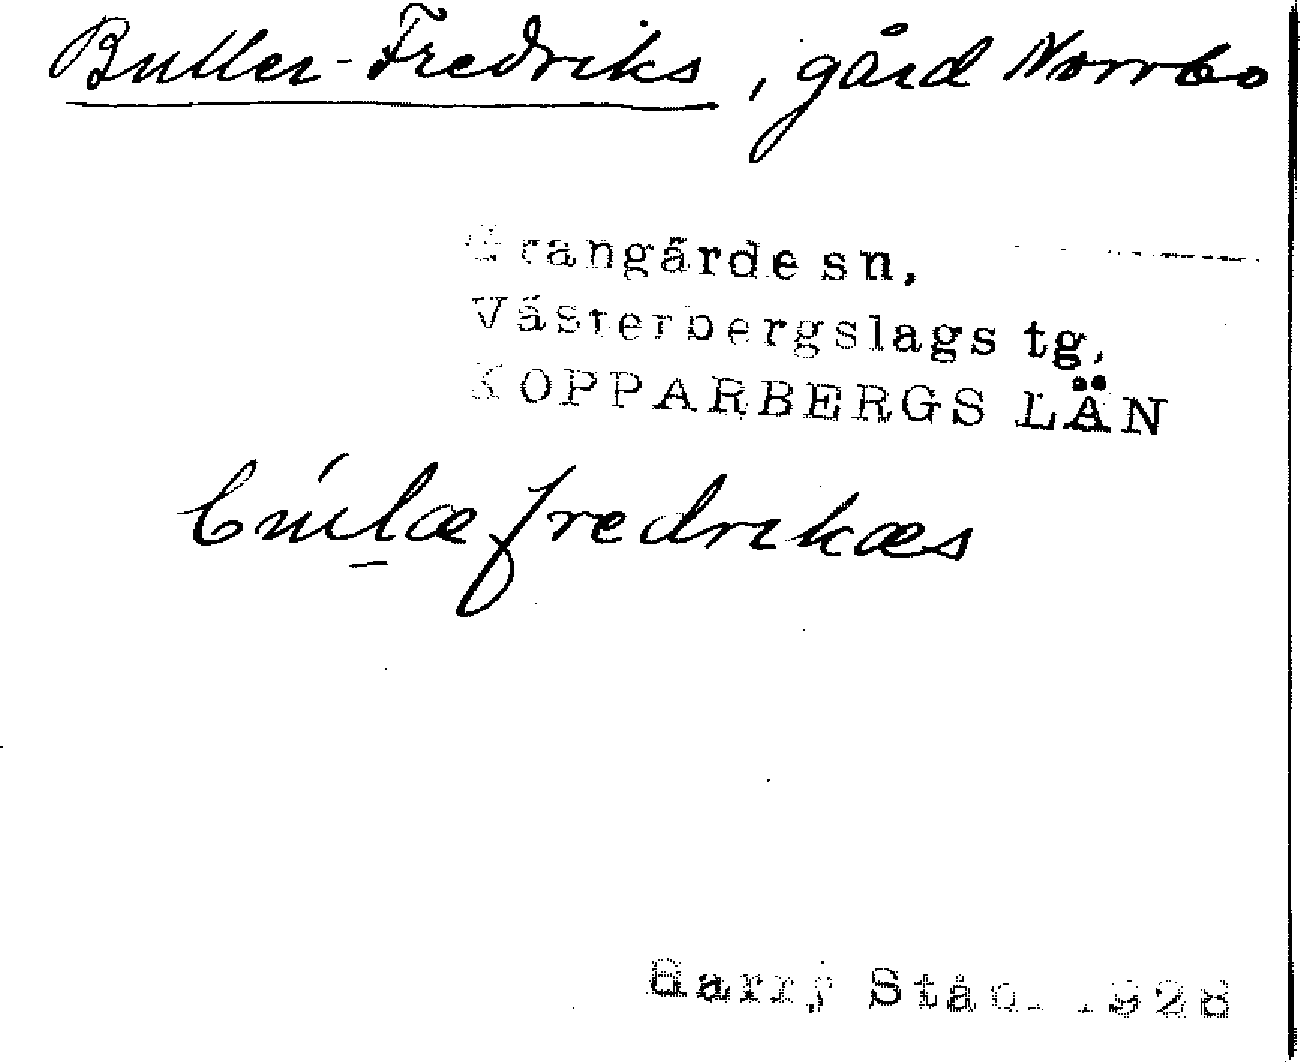 Buller-Fredriks, gård Norrbo
Grangärde sn.
Västerbergslags tg.
KOPPARBERGS LÄN
Harry Ståhl 1928